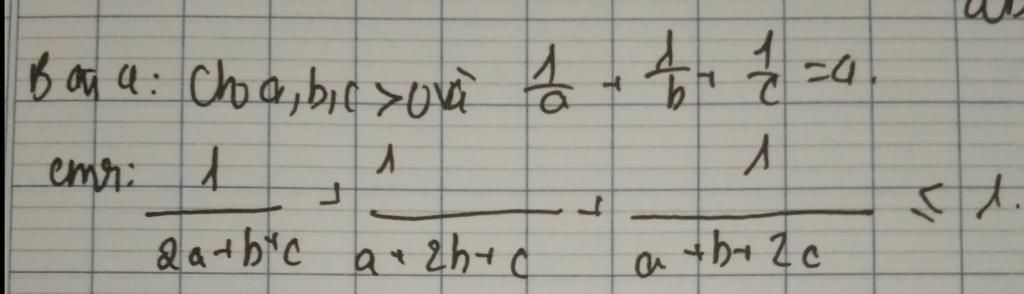 Bài 4: Cho a, b, c > 0 và 1/a + 1/b + 1/c = 4.
cmr: 1/(2a+b+c) + 1/(a+2b+c) + 1/(a+b+2c) ≤ 1.